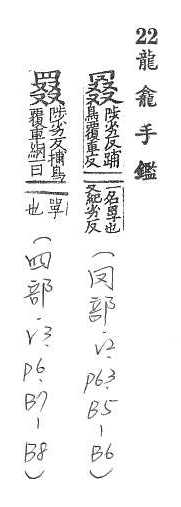 22 龍龕手鑑
叕 陟劣反捕鳥覆車反 一名罩也又紀劣反 (罔部.v2.p63.B5-B6)
罬 陟劣反捕鳥覆車網曰罩也 (四部.v3.p6.B7-B8)